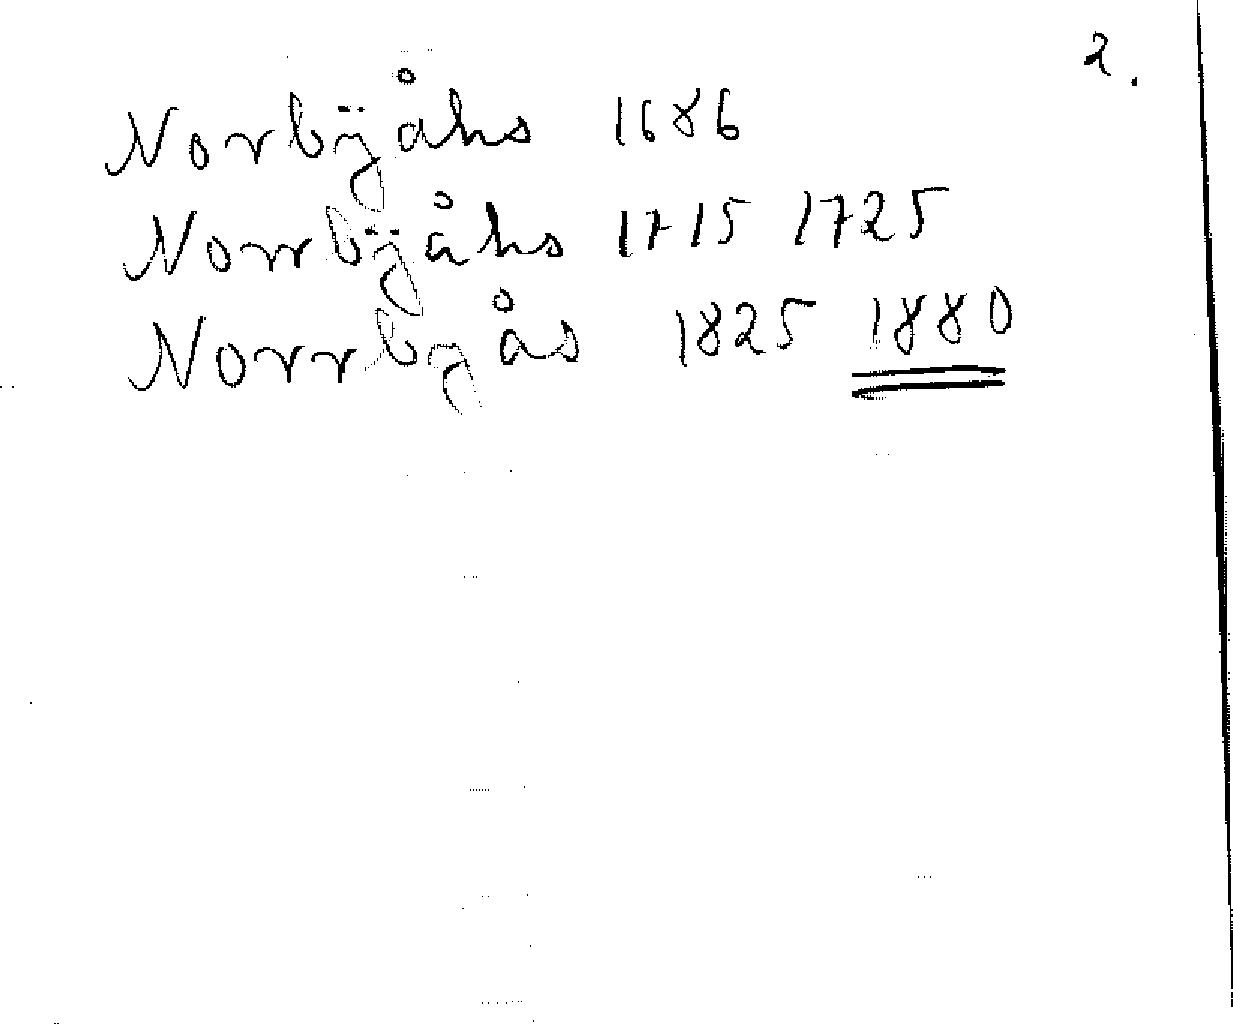 2.
Norbÿåhs 1686
Norrbÿåhs 1715 1725
Norrbyås 1825 1880